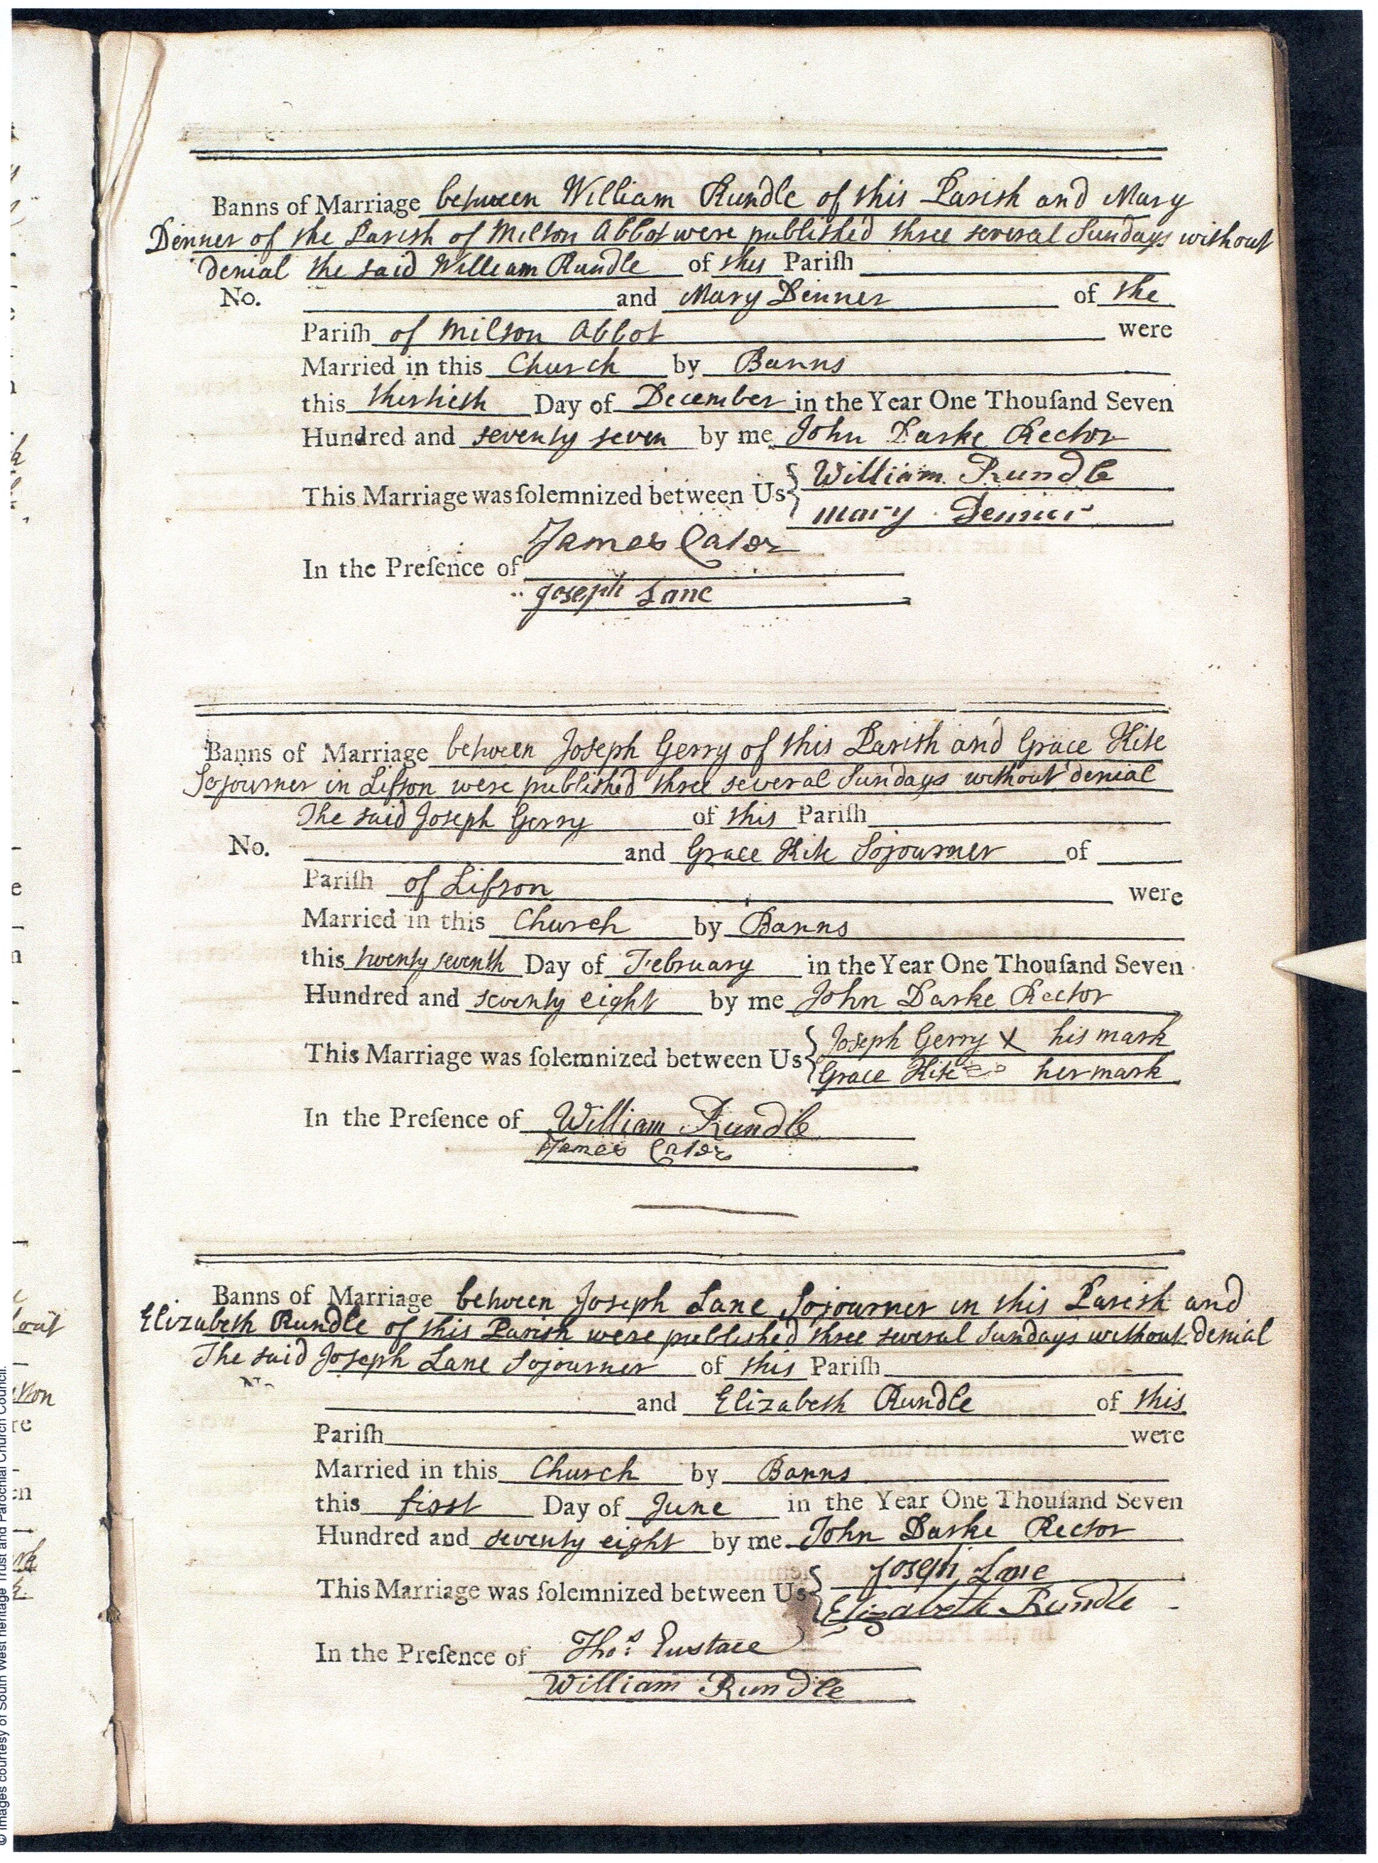 Banns of Marriage between William Rundle of this Parish and Mary
Denner of the Parish of Milton Abbot were published three several Sundays without
denial the said William Rundle of this Pariſh
No. and Mary Denner of the
Pariſh of Milton Abbot were
Married in this Church by Banns
this thirtieth Day of December in the Year One Thouſand Seven
Hundred and seventy seven by me John Darke Rector
This Marriage was ſolemnized between Us William Rundle
Mary Denner
In the Preſence of James Cater
Joseph Lane
Banns of Marriage between Joseph Gerry of this Parish and Grace Kite
Sojourner in Lifton were published three several Sundays without denial
The said Joseph Gerry of this Pariſh
No. and Grace Kite Sojourner of
Pariſh of Lifton were
Married in this Church by Banns
this twenty seventh Day of February in the Year One Thouſand Seven
Hundred and seventy eight by me John Darke Rector
This Marriage was ſolemnized between Us Joseph Gerry X his mark
Grace Kite her mark
In the Preſence of William Rundle
James Cater
Banns of Marriage between Joseph Lane Sojourner in this Parish and
Elizabeth Rundle of this Parish were published three several Sundays without denial
The said Joseph Lane Sojourner of this Pariſh
No.
and Elizabeth Rundle of this
Pariſh were
Married in this Church by Banns
this first Day of June in the Year One Thouſand Seven
Hundred and seventy eight by me John Darke Rector
This Marriage was ſolemnized between Us Joseph Lane
Elizabeth Rundle
In the Preſence of Thos Eustace
William Rundle
© Images courtesy of South West Heritage Trust and Parochial Church Council.